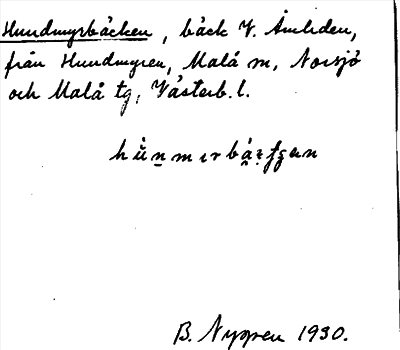 Hundmyrbäcken, bäck V. Åmliden,
från Hundmyren, Malå sn, Norsjö
och Malå tg, Västerb. l.
B. Nygren 1930.